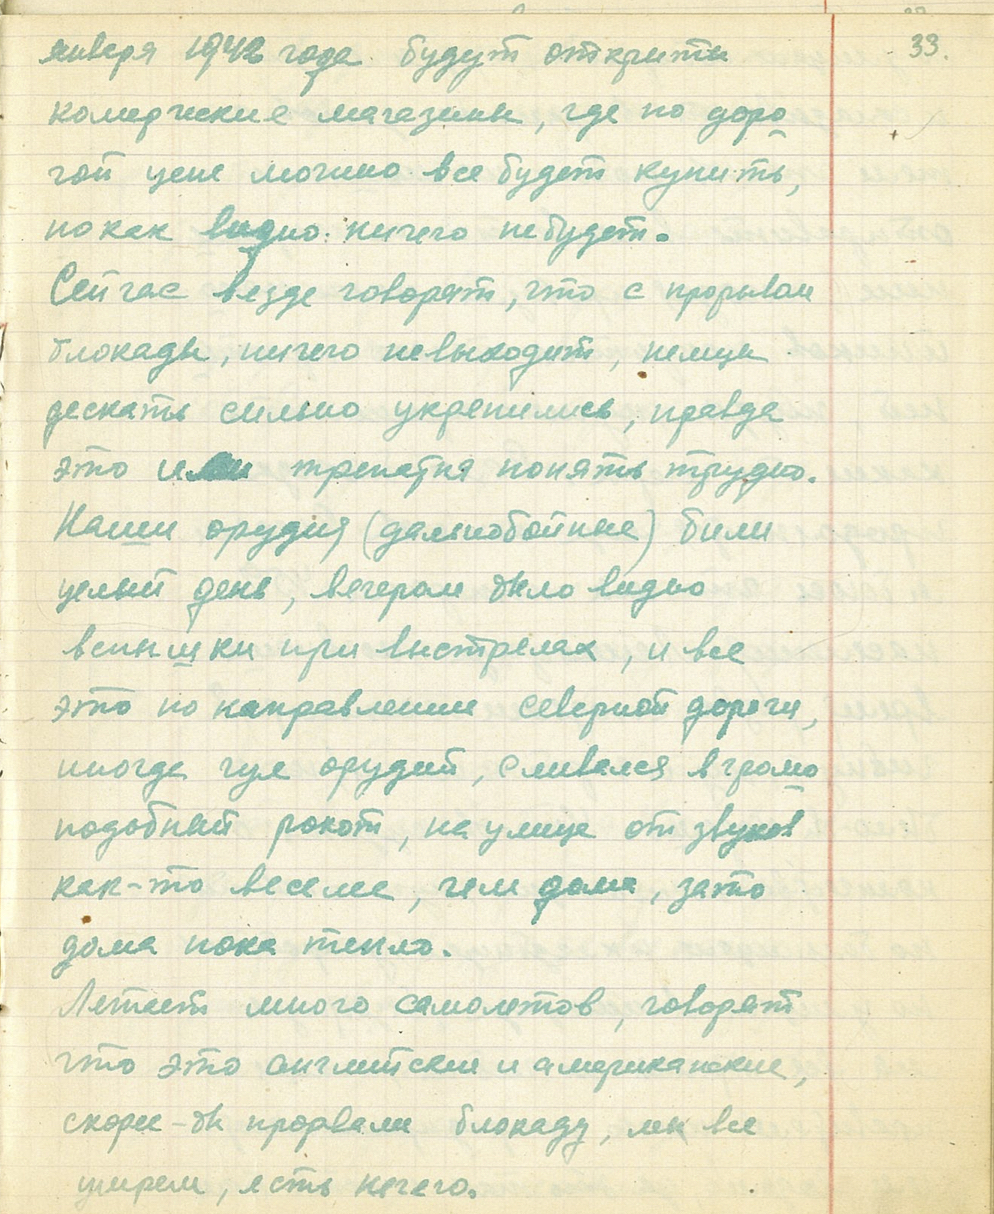 33.
января 1942 года будут открыты
комерческие магазины, где по доро
гой цене можно все будет купить,
но как видно ничего небудет.
Сейчас везде говорят, что с прорывом
блокады, ничего невыходит, немцы
дескать сильно укрепились, правда
это или трепатня понять трудно.
Наши орудия (дальнобойные) били
целый день, вечером было видно
вспышки при выстрелах, и все
это по направлении северной дороги,
иногда гул орудий, сливался в громо
подобный рокот, на улице от звуков
как-то веселе, чем дома, зато
дома пока тепло.
Летает много самолетов, говорят
что это английские и американские,
скорее-бы прорвали блокаду, мы все
умрем, есть нечего.